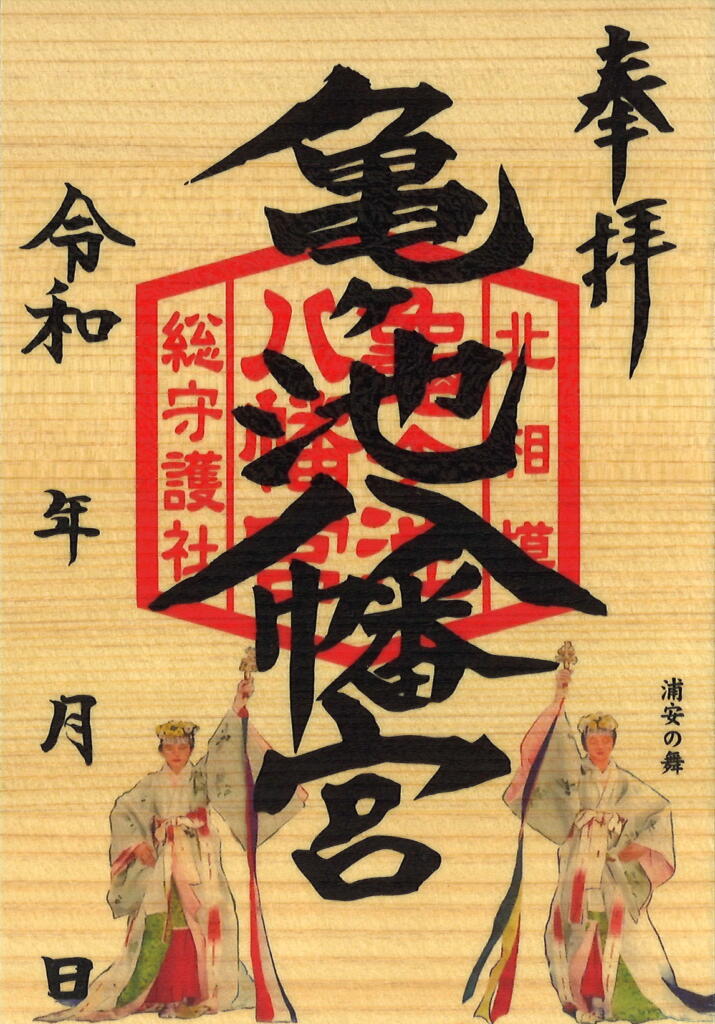 奉拝
亀ヶ池八幡宮
北相模
亀ヶ池
八幡宮
総守護社
令和 年 月 日
浦安の舞